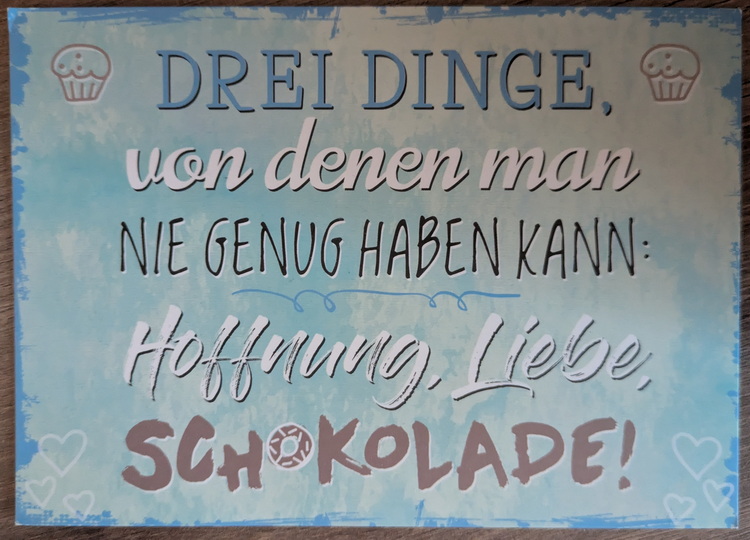 DREI DINGE,
von denen man
NIE GENUG HABEN KANN:
Hoffnung, Liebe,
SCHOKOLADE!